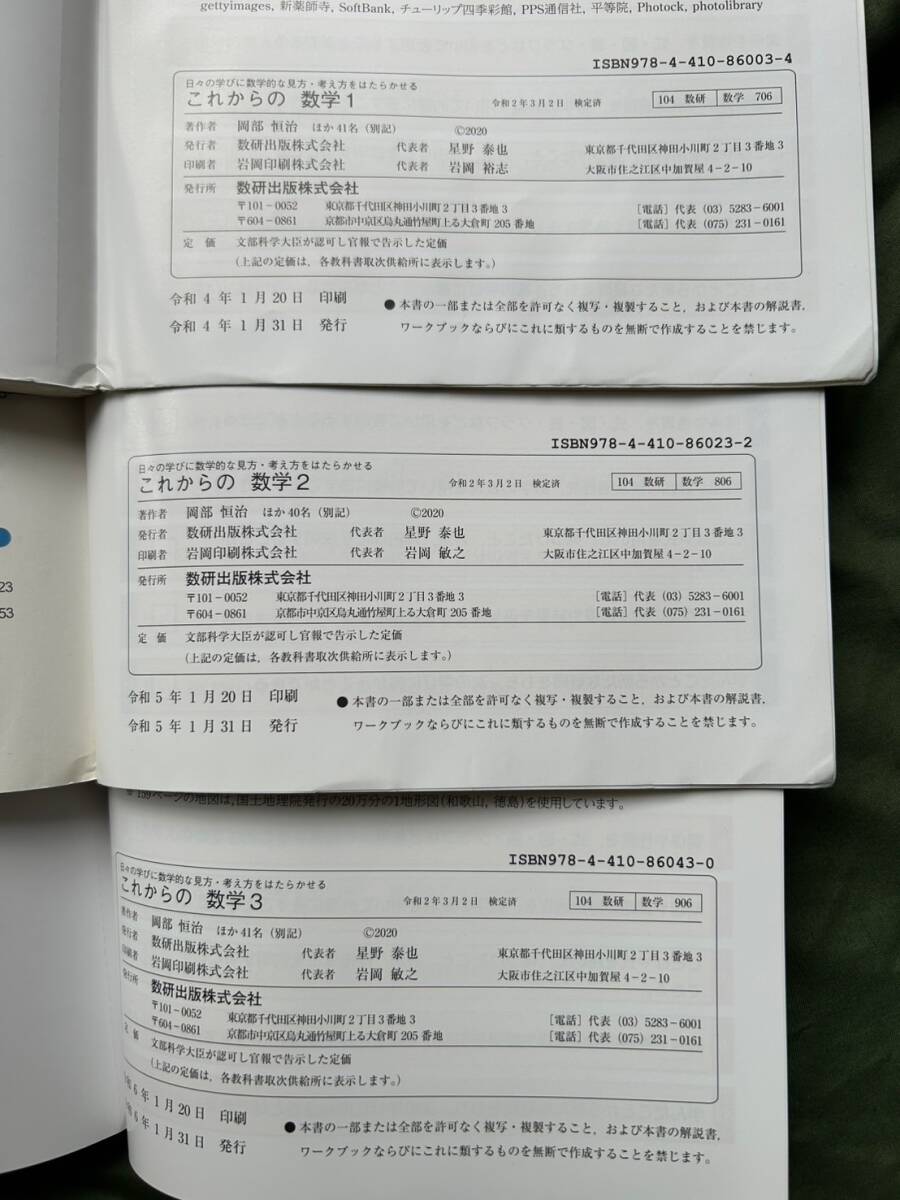 gettyimages, 新薬師寺, SoftBank, チューリップ四季彩館, PPS通信社, 平等院, Photock, photolibrary
ISBN978-4-410-86003-4
日々の学びに数学的な見方・考え方をはたらかせる
これからの 数学1 令和2年3月2日 検定済 104 数研 数学 706
著作者 岡部 恒治 ほか41名（別記） ©2020
発行者 数研出版株式会社 代表者 星野 泰也 東京都千代田区神田小川町2丁目3番地3
印刷者 岩岡印刷株式会社 代表者 岩岡 裕志 大阪市住之江区中加賀屋4-2-10
発行所 数研出版株式会社
〒101-0052 東京都千代田区神田小川町2丁目3番地3 ［電話］代表（03）5283-6001
〒604-0861 京都市中京区烏丸通竹屋町上る大倉町205番地 ［電話］代表（075）231-0161
定価 文部科学大臣が認可し官報で告示した定価
（上記の定価は，各教科書取次供給所に表示します。）
令和4年1月20日 印刷
令和4年1月31日 発行
●本書の一部または全部を許可なく複写・複製すること，および本書の解説書，
ワークブックならびにこれに類するものを無断で作成することを禁じます。
ISBN978-4-410-86023-2
日々の学びに数学的な見方・考え方をはたらかせる
これからの 数学2 令和2年3月2日 検定済 104 数研 数学 806
著作者 岡部 恒治 ほか40名（別記） ©2020
発行者 数研出版株式会社 代表者 星野 泰也 東京都千代田区神田小川町2丁目3番地3
印刷者 岩岡印刷株式会社 代表者 岩岡 敏之 大阪市住之江区中加賀屋4-2-10
発行所 数研出版株式会社
〒101-0052 東京都千代田区神田小川町2丁目3番地3 ［電話］代表（03）5283-6001
〒604-0861 京都市中京区烏丸通竹屋町上る大倉町205番地 ［電話］代表（075）231-0161
定価 文部科学大臣が認可し官報で告示した定価
（上記の定価は，各教科書取次供給所に表示します。）
令和5年1月20日 印刷
令和5年1月31日 発行
●本書の一部または全部を許可なく複写・複製すること，および本書の解説書，
ワークブックならびにこれに類するものを無断で作成することを禁じます。
23
53
159ページの地図は，国土地理院発行の20万分の1地形図（和歌山，徳島）を使用しています。
ISBN978-4-410-86043-0
日々の学びに数学的な見方・考え方をはたらかせる
これからの 数学3 令和2年3月2日 検定済 104 数研 数学 906
著作者 岡部 恒治 ほか41名（別記） ©2020
発行者 数研出版株式会社 代表者 星野 泰也 東京都千代田区神田小川町2丁目3番地3
印刷者 岩岡印刷株式会社 代表者 岩岡 敏之 大阪市住之江区中加賀屋4-2-10
発行所 数研出版株式会社
〒101-0052 東京都千代田区神田小川町2丁目3番地3 ［電話］代表（03）5283-6001
〒604-0861 京都市中京区烏丸通竹屋町上る大倉町205番地 ［電話］代表（075）231-0161
定価 文部科学大臣が認可し官報で告示した定価
（上記の定価は，各教科書取次供給所に表示します。）
和6年1月20日 印刷
和6年1月31日 発行
●本書の一部または全部を許可なく複写・複製すること，および本書の解説書，
ワークブックならびにこれに類するものを無断で作成することを禁じます。